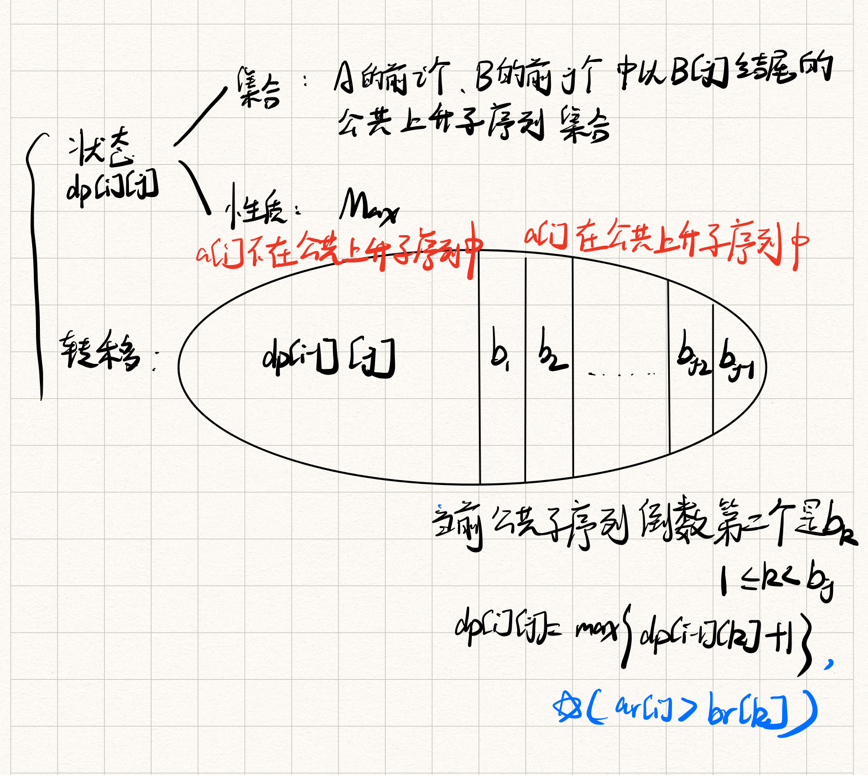 集合：A的前i个、B的前j个中以B[j]结尾的
公共上升子序列集合
状态
dp[i][j]
性质：Max
a[i]不在公共上升子序列中
a[i]在公共上升子序列中
转移：
dp[i-1][j]
b1 b2 ...... bj-2 bj-1
当前公共子序列倒数第二个是bk
1≤k<bj
dp[i][j]=max{dp[i-1][k]+1},
☆(ar[i]>br[k])